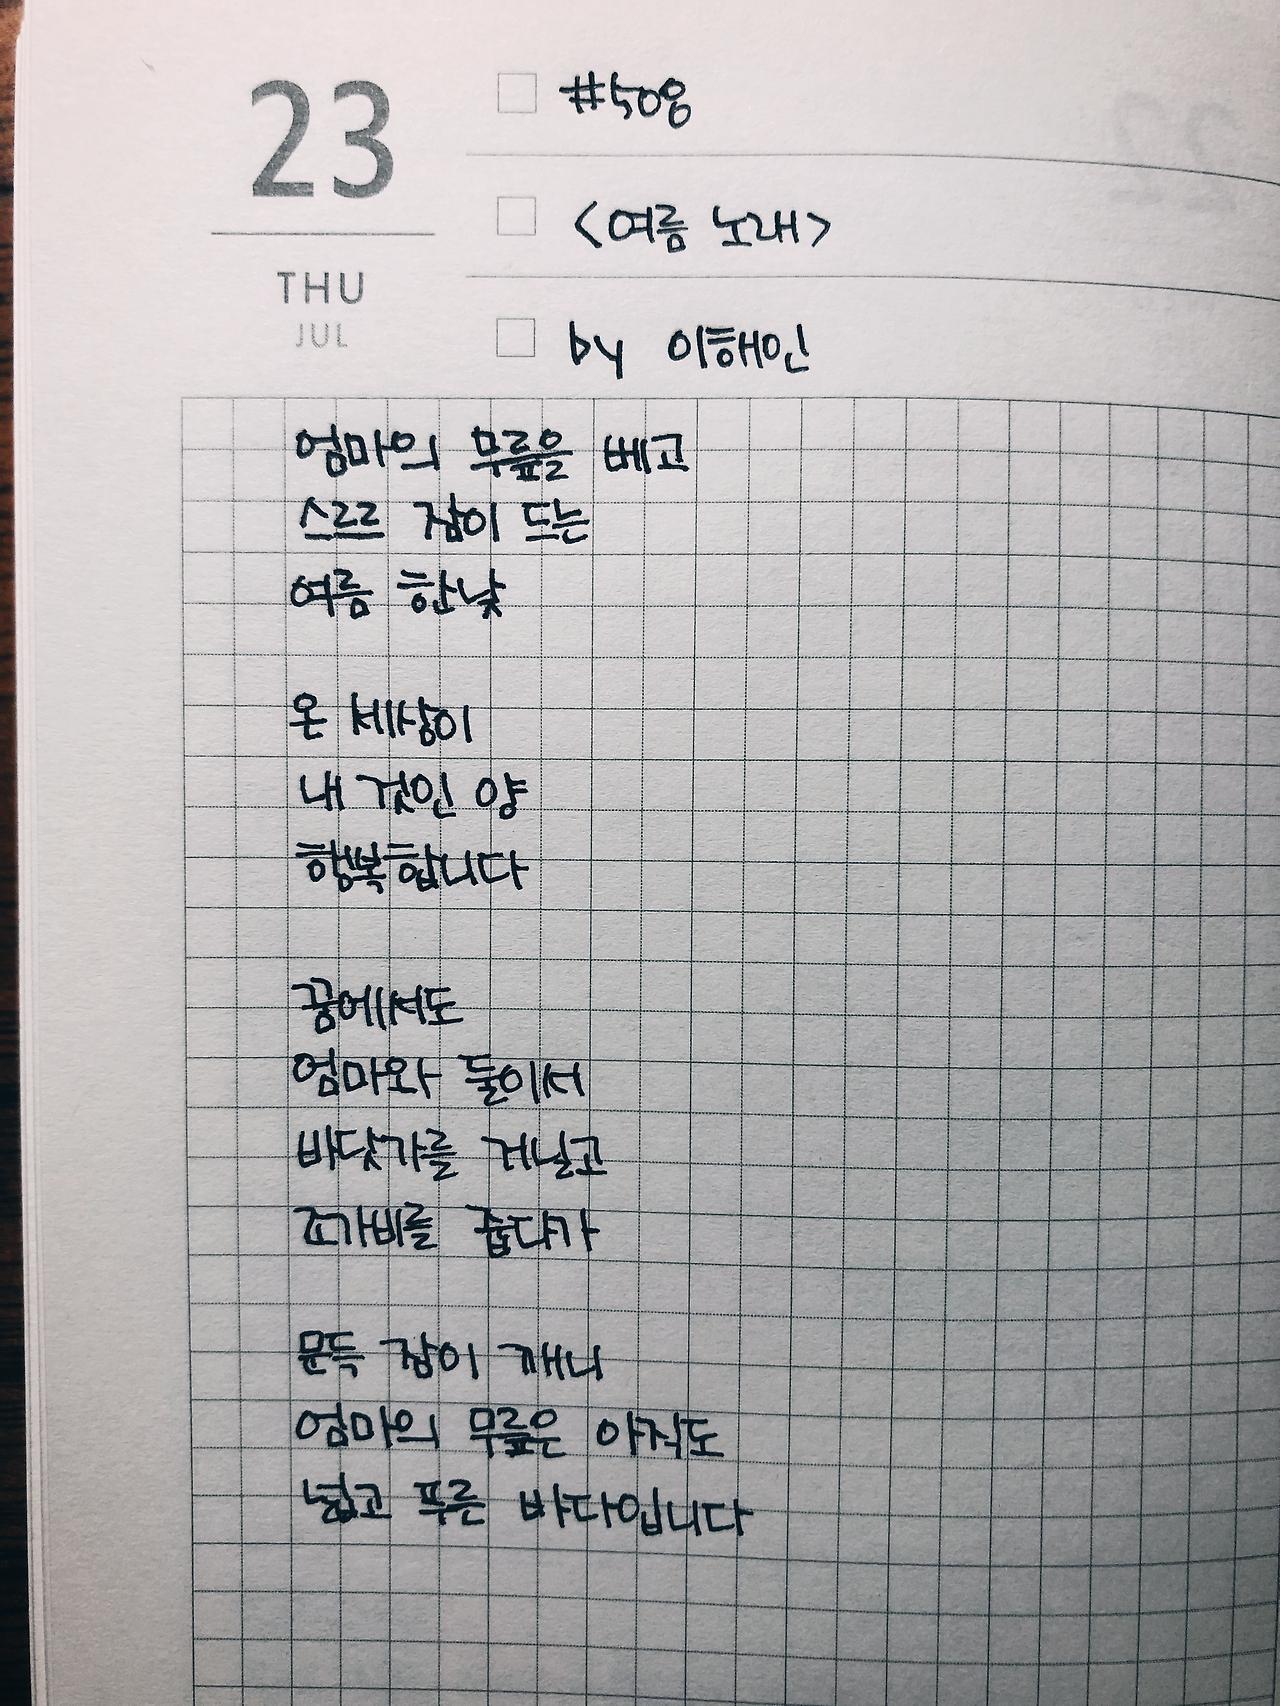 23
THU
JUL
#508
<여름 노래>
by 이해인
엄마의 무릎을 베고
스르르 잠이 드는
여름 한낮
온 세상이
내 것인 양
행복합니다
꿈에서도
엄마와 둘이서
바닷가를 거닐고
조가비를 줍다가
문득 잠이 깨니
엄마의 무릎은 아직도
넓고 푸른 바다입니다